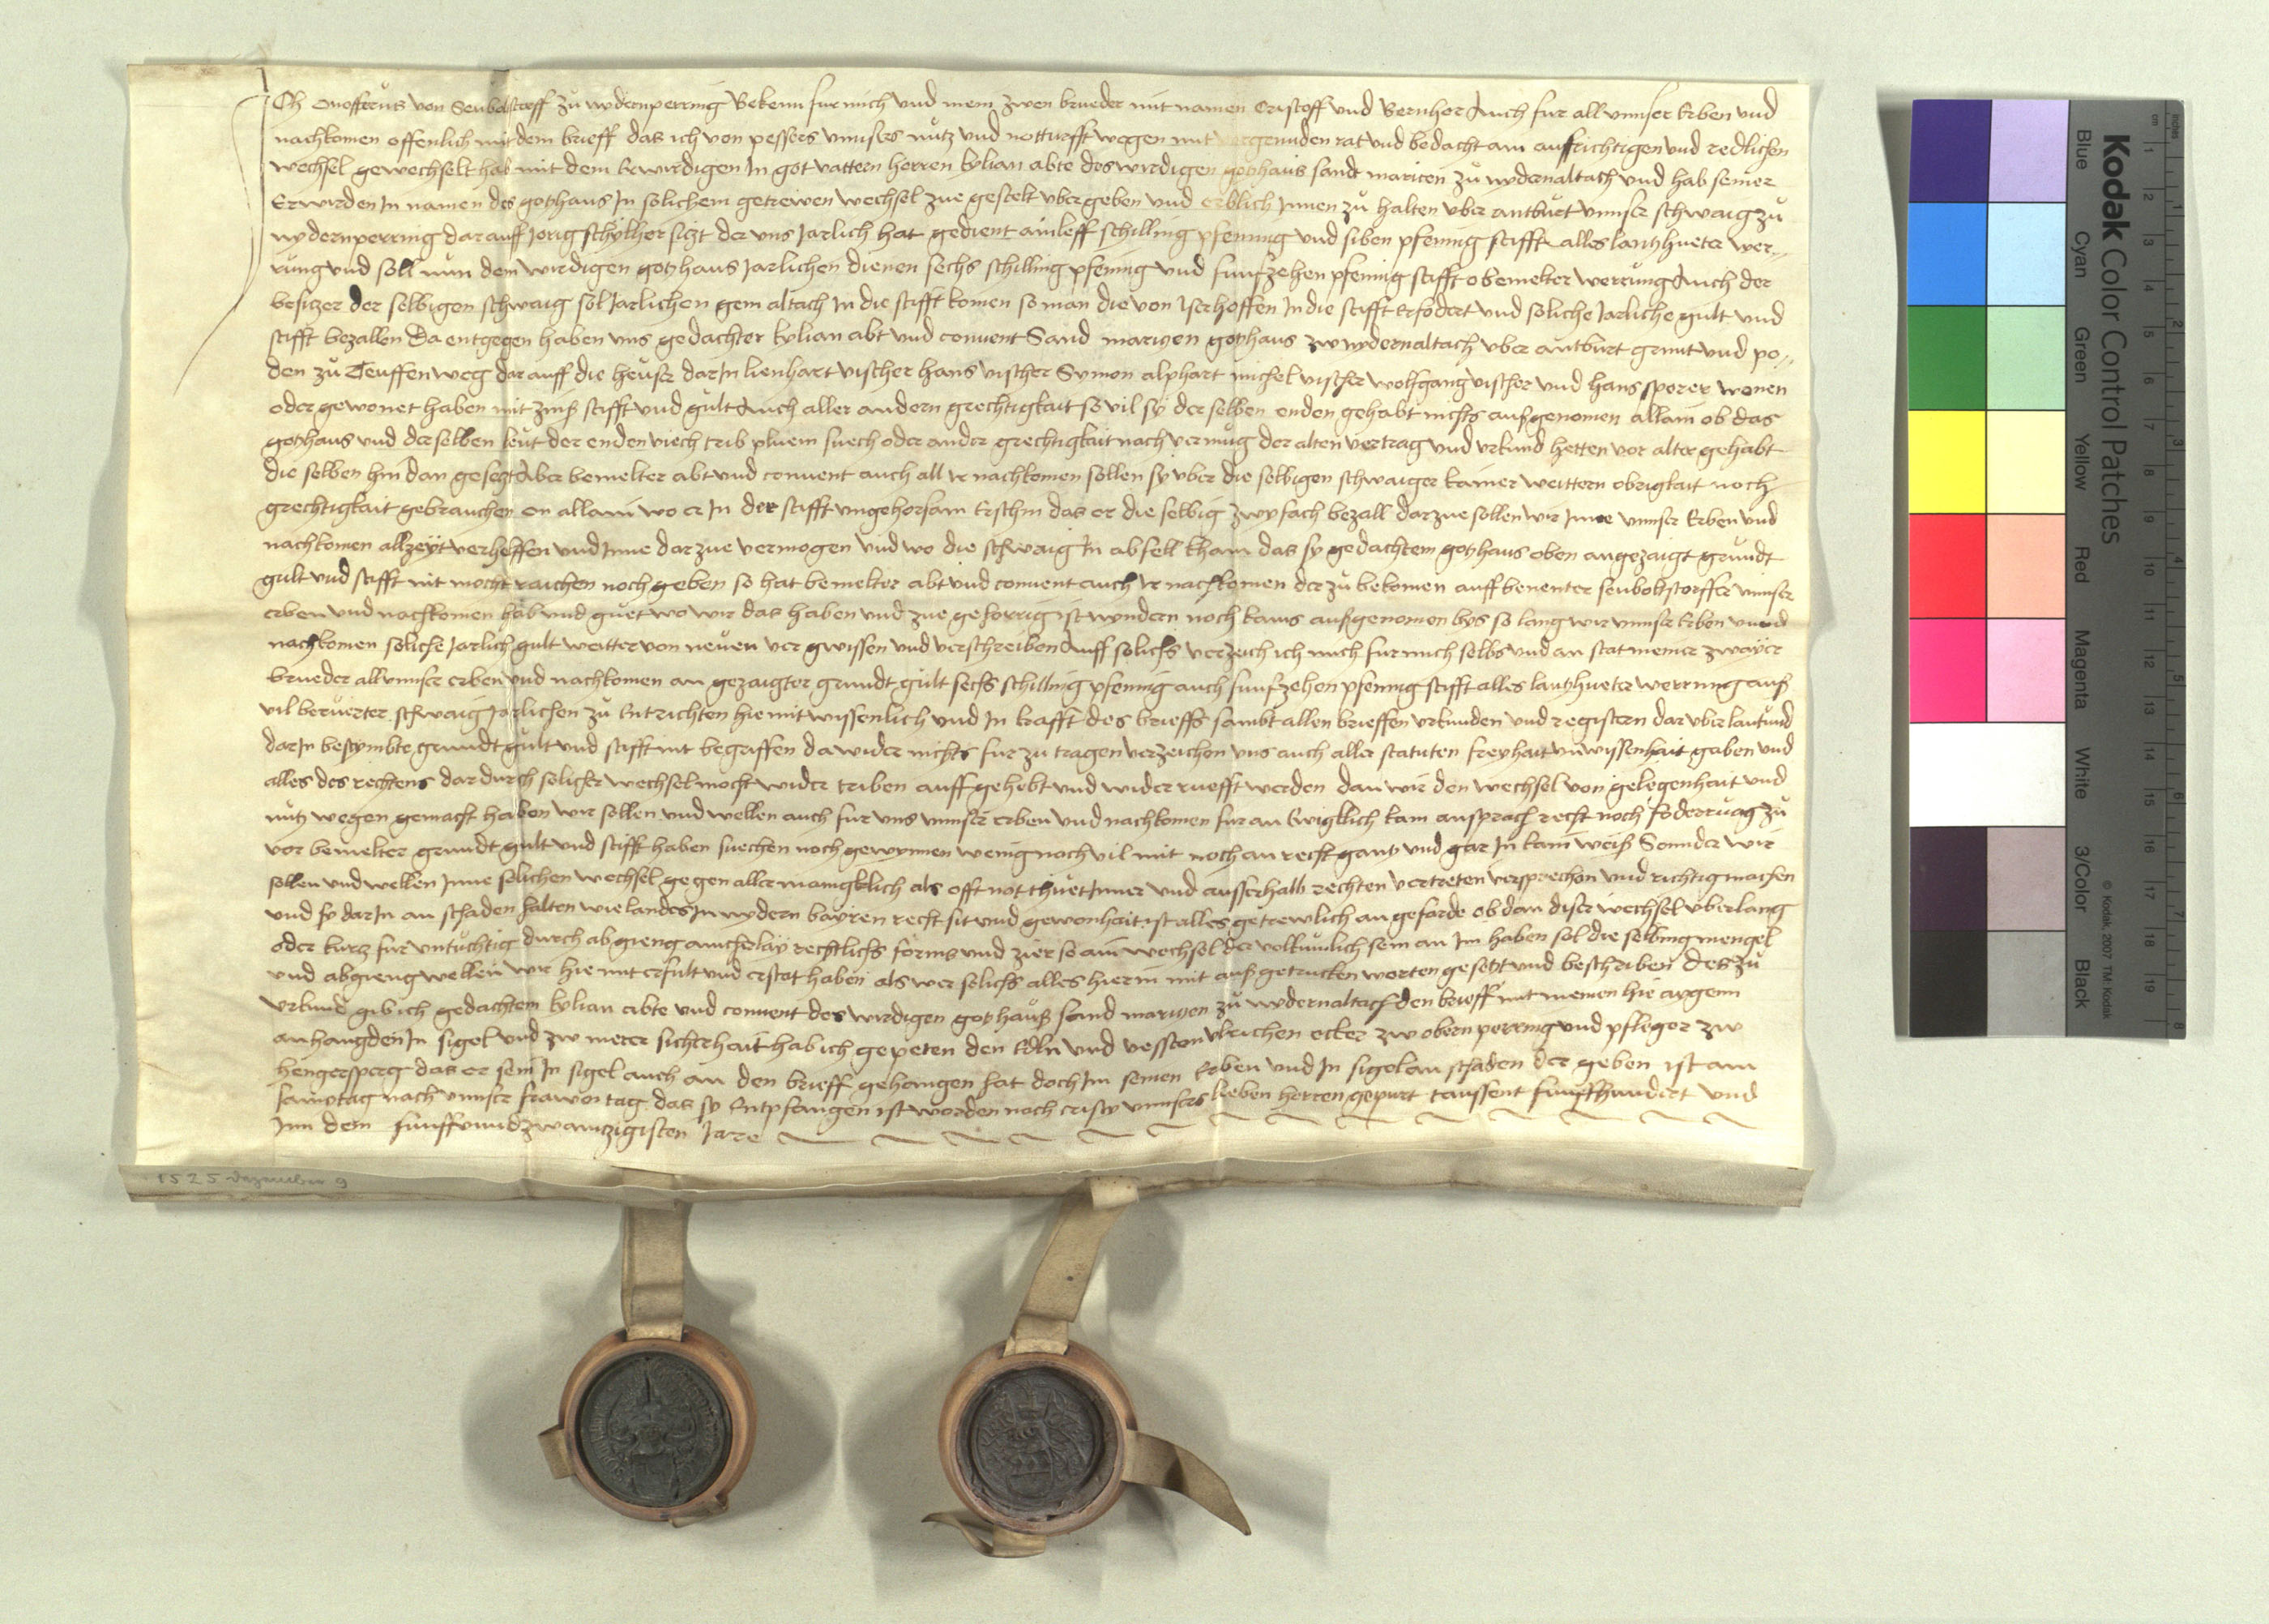 Ich Onoffrius von Seuboltstorff zu nydernperring Bekenn fur mich und mein zwen brueder mit namen Cristoff und Bernher Auch fur all unnser Erben und
nachkomen offenlich mit dem brieff das ich von pessers unnsers nutz und notturfft wegen mit vorgeunden rat und bedacht am auffrichtigen und redlichen
wechsel gewechselt hab mit dem Erwirdigen In got vattern herren kylian abte des wirdigen gotzhaus sandt maricen zu nydernaltach und hab seiner
Erwirden In namen des gotzhaus In solichem getrewen wechsel zue gestelt ubergeben und erblich Innen zu halten uber antburt unnser schwaig zu
nydernperring darauff Jorig schylher sitzt der uns Jarlich hat gedient ainleff schilling pfening und siben pfenig stifft alles lantzhueter wer-
rung und soll nun dem wirdigen gotzhaus Jarlichen dienen sechs schilling pfening und funfzehen pfennig stifft obemelter werrung Auch der
besitzer der selbigen schwaig sol Jarlichen gem altach In die stifft komen so man die von Iserhoffen In die stifft erfodert und soliche Jarliche gult und
stifft bezallen Da entgegen haben uns gedachter kylian abt und convent Sand maricen gotzhaus zw nydernaltach uber antburt grunt und po-
den zu Teuffenweg dar auff die heuser dar In lienhart vischer hans vischer Symon alphart michel vischer wolfgang vischer und hans sporer wonen
oder gewonet haben mit zinß stifft und gult Auch aller andern grechtigkait so vil sy der selben enden gehabt nichts außgenomen allain ob das
gotzhaus und derselben leut der enden viech trib pluem suech oder ander grechtigkait nach vermug der alten vertrag und urkund hetten vor alter gehabt
die selben hin dan gesetzt Aber bemelter abt und convent auch all Ir nachkomen sollen sy uber die selbigen schwaiger kainer weittern obrigkait noch
grechtigkait gebrauchen en allain wo er In der stifft ungehorsam Erschin das er die selbig zwyfach bezall dar zue sollen wir Inne unnser Erben und
nachkomen allzeyt verhelffen und Inne dar zue vermogen und wo die schwaig In abfell kham das sy gedachtem gotzhaus oben angezaigt grundt
gult und stifft nit mocht raichen noch geben so hat bemelter abt und convent auch Ir nachkomen der zu bekomen auff benenter seuboltstorffer unnser
erben und nachkomen hab und guet wo wir das haben und zue gehorrig ist nyndern noch kains außgenomen bys so lang wir unnser Erben unnd
nachkomen soliche Jarlich gult weitter von neuen ver gwissen und verschreiben Auff solichs verzeich ich mich fur mich selbs und an stat meiner zwayer
brueder all unnser erben und nachkomen an gezaigter grundt gult sechs schilling pfennig auch funfzehen pfennig stifft alles lantzhueter werrung auß
vil beruerter schwaig Jarlichen zu Entrichten hie mit wissenlich und In krafft des brieffs sambt allen brieffen urkunden und registern dar uber laut und
dar In bestymbte grundt gult und stifft mit begriffen da wider nichts fur zu tragen verzeichen uns auch aller statuten freyhait unwissenhait gaben und
alles des rechtens dar durch solicher wechsel mocht wider triben auff gehebt und wider ruefft werden dan wir den wechsel von gelegenhait und
nutz wegen gemacht haben wir sollen und wellen auch fur uns unnser erben und nachkomen fur an Ewigklich kain ansprach recht noch foderrung zu
vor bemelter grundt gult und stifft haben suechen noch gewynnen wenig noch vil mit noch an recht gantz und gar In kain weiß Sonnder wir
sollen und wellen Inne solichen wechsel gegen aller manigklich als offt not thuet Inner und ausserhalb rechten vertreten versprechen und richtig machen
und sy dar In an schaden halten wie landes In nydern bayren recht sit und gewonhait ist alles getrewlich an geferde ob dan diser wechsel uberlang
oder kurtz fur untuchtig durch abgieng ainicherlay rechtlichs forms und zier so ain wechsel der volkumlich sein an Im haben sol die selbing mengel
und abgieng wellen wir hie mit erfult und erstat haben als wer solichs alles hierin mit auß getruckten worten gesetzt und beschriben Des zu
Urkund gib ich gedachtem kylian abte und convent des wirdigen gotzhauß sand maricen zu nydernaltach den brieff mit meinen hie aygenn
anhangden In sigel und zw merer sicherhait hab ich gepeten den Edln und vessten Ulrichen ecker zw obern perring und pfleger zw
hengersperg das er sein In sigel auch an den brieff gehangen hat doch Im seinen Erben und In sigel an schaden der geben ist am
samptag nach unnser frawen tag das sy Entpfangen ist worden nach cristy unnsers lieben herren gepurt taussent funffhundert und
Inn dem funffundzwaintzigisten Jarre
1525 Dezember 9
Kodak Color Control Patches
Blue Cyan Green Yellow Red Magenta White 3/Color Black
© Kodak, 2007 TM: Kodak
inches 1 2 3 4 5 6 7 8
cm 1 2 3 4 5 6 7 8 9 10 11 12 13 14 15 16 17 18 19